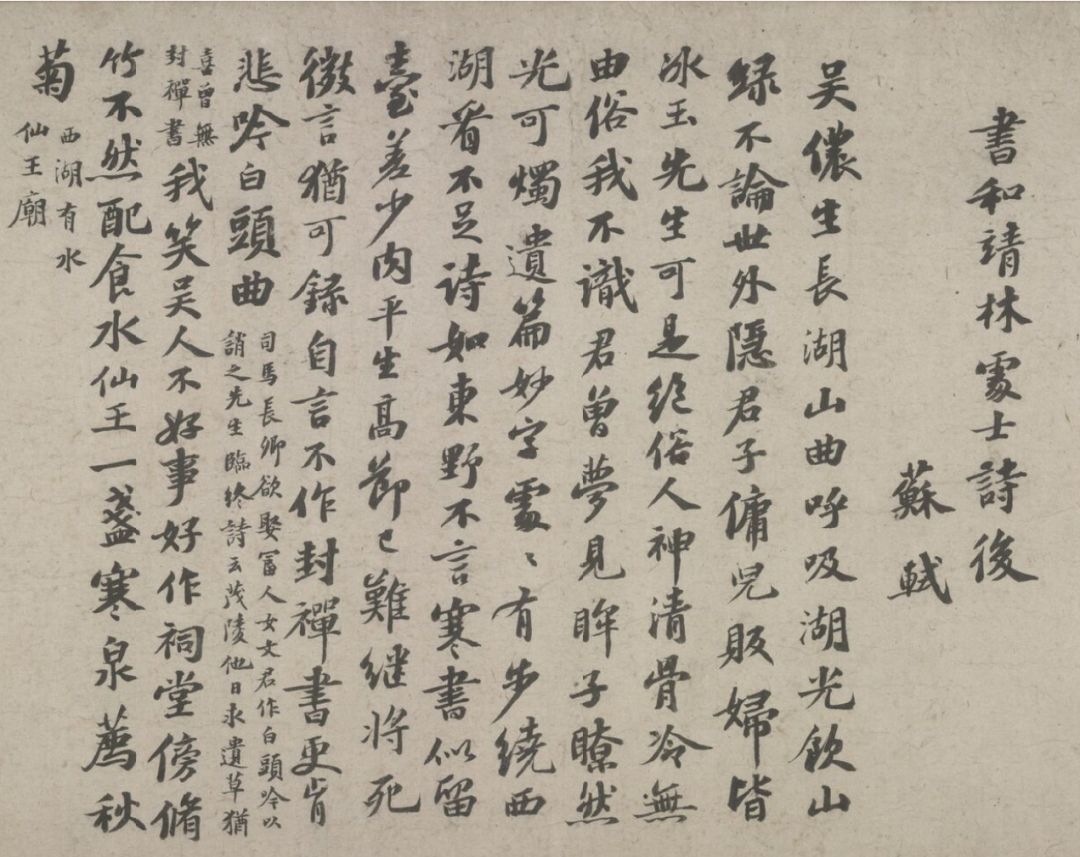 書和靖林處士詩後
蘇軾
吳儂生長湖山曲呼吸湖光飲山
緑不論世外隱君子傭兒販婦皆
冰玉先生可是絕俗人神清骨冷無
由俗我不識君曾夢見眸子瞭然
光可燭遺篇妙字處〻有步繞西
湖看不足詩如東野不言寒書似留
臺差少肉平生高節已難繼將死
微言猶可錄自言不作封禪書更肯
悲吟白頭曲
司馬長卿欲娶富人女文君作白頭吟以
誚之先生臨終詩云茂陵他日求遺草猶
喜曾無
封禪書
我笑吳人不好事好作祠堂傍脩
竹不然配食水仙王一盞寒泉薦秋
菊
西湖有水
仙王廟